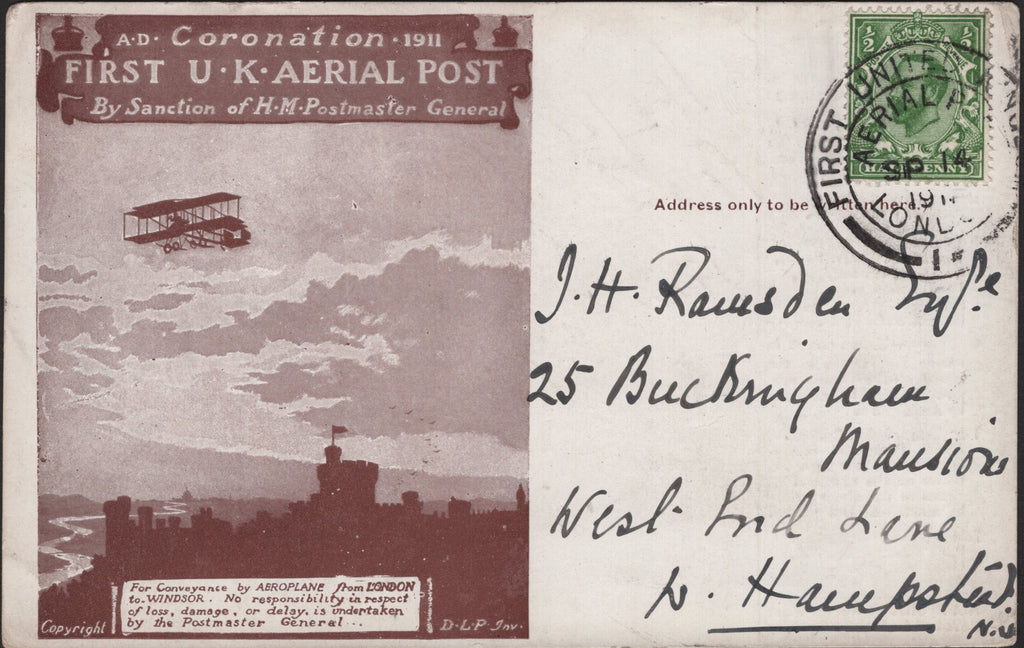 A·D· Coronation · 1911
FIRST U·K·AERIAL POST
By Sanction of H·M·Postmaster General
For Conveyance by AEROPLANE from LONDON
to WINDSOR. No responsibility in respect
of loss, damage, or delay, is undertaken
by the Postmaster General...
Copyright
D·L·P·Inv.
½
½
HALFPENNY
FIRST UNITED
AERIAL P
SP 14
1911
LONDON
1
Address only to be written here.
J. H. Ramsden Esqre
25 Buckingham
Mansions
West End Lane
W. Hampstead.
N.W